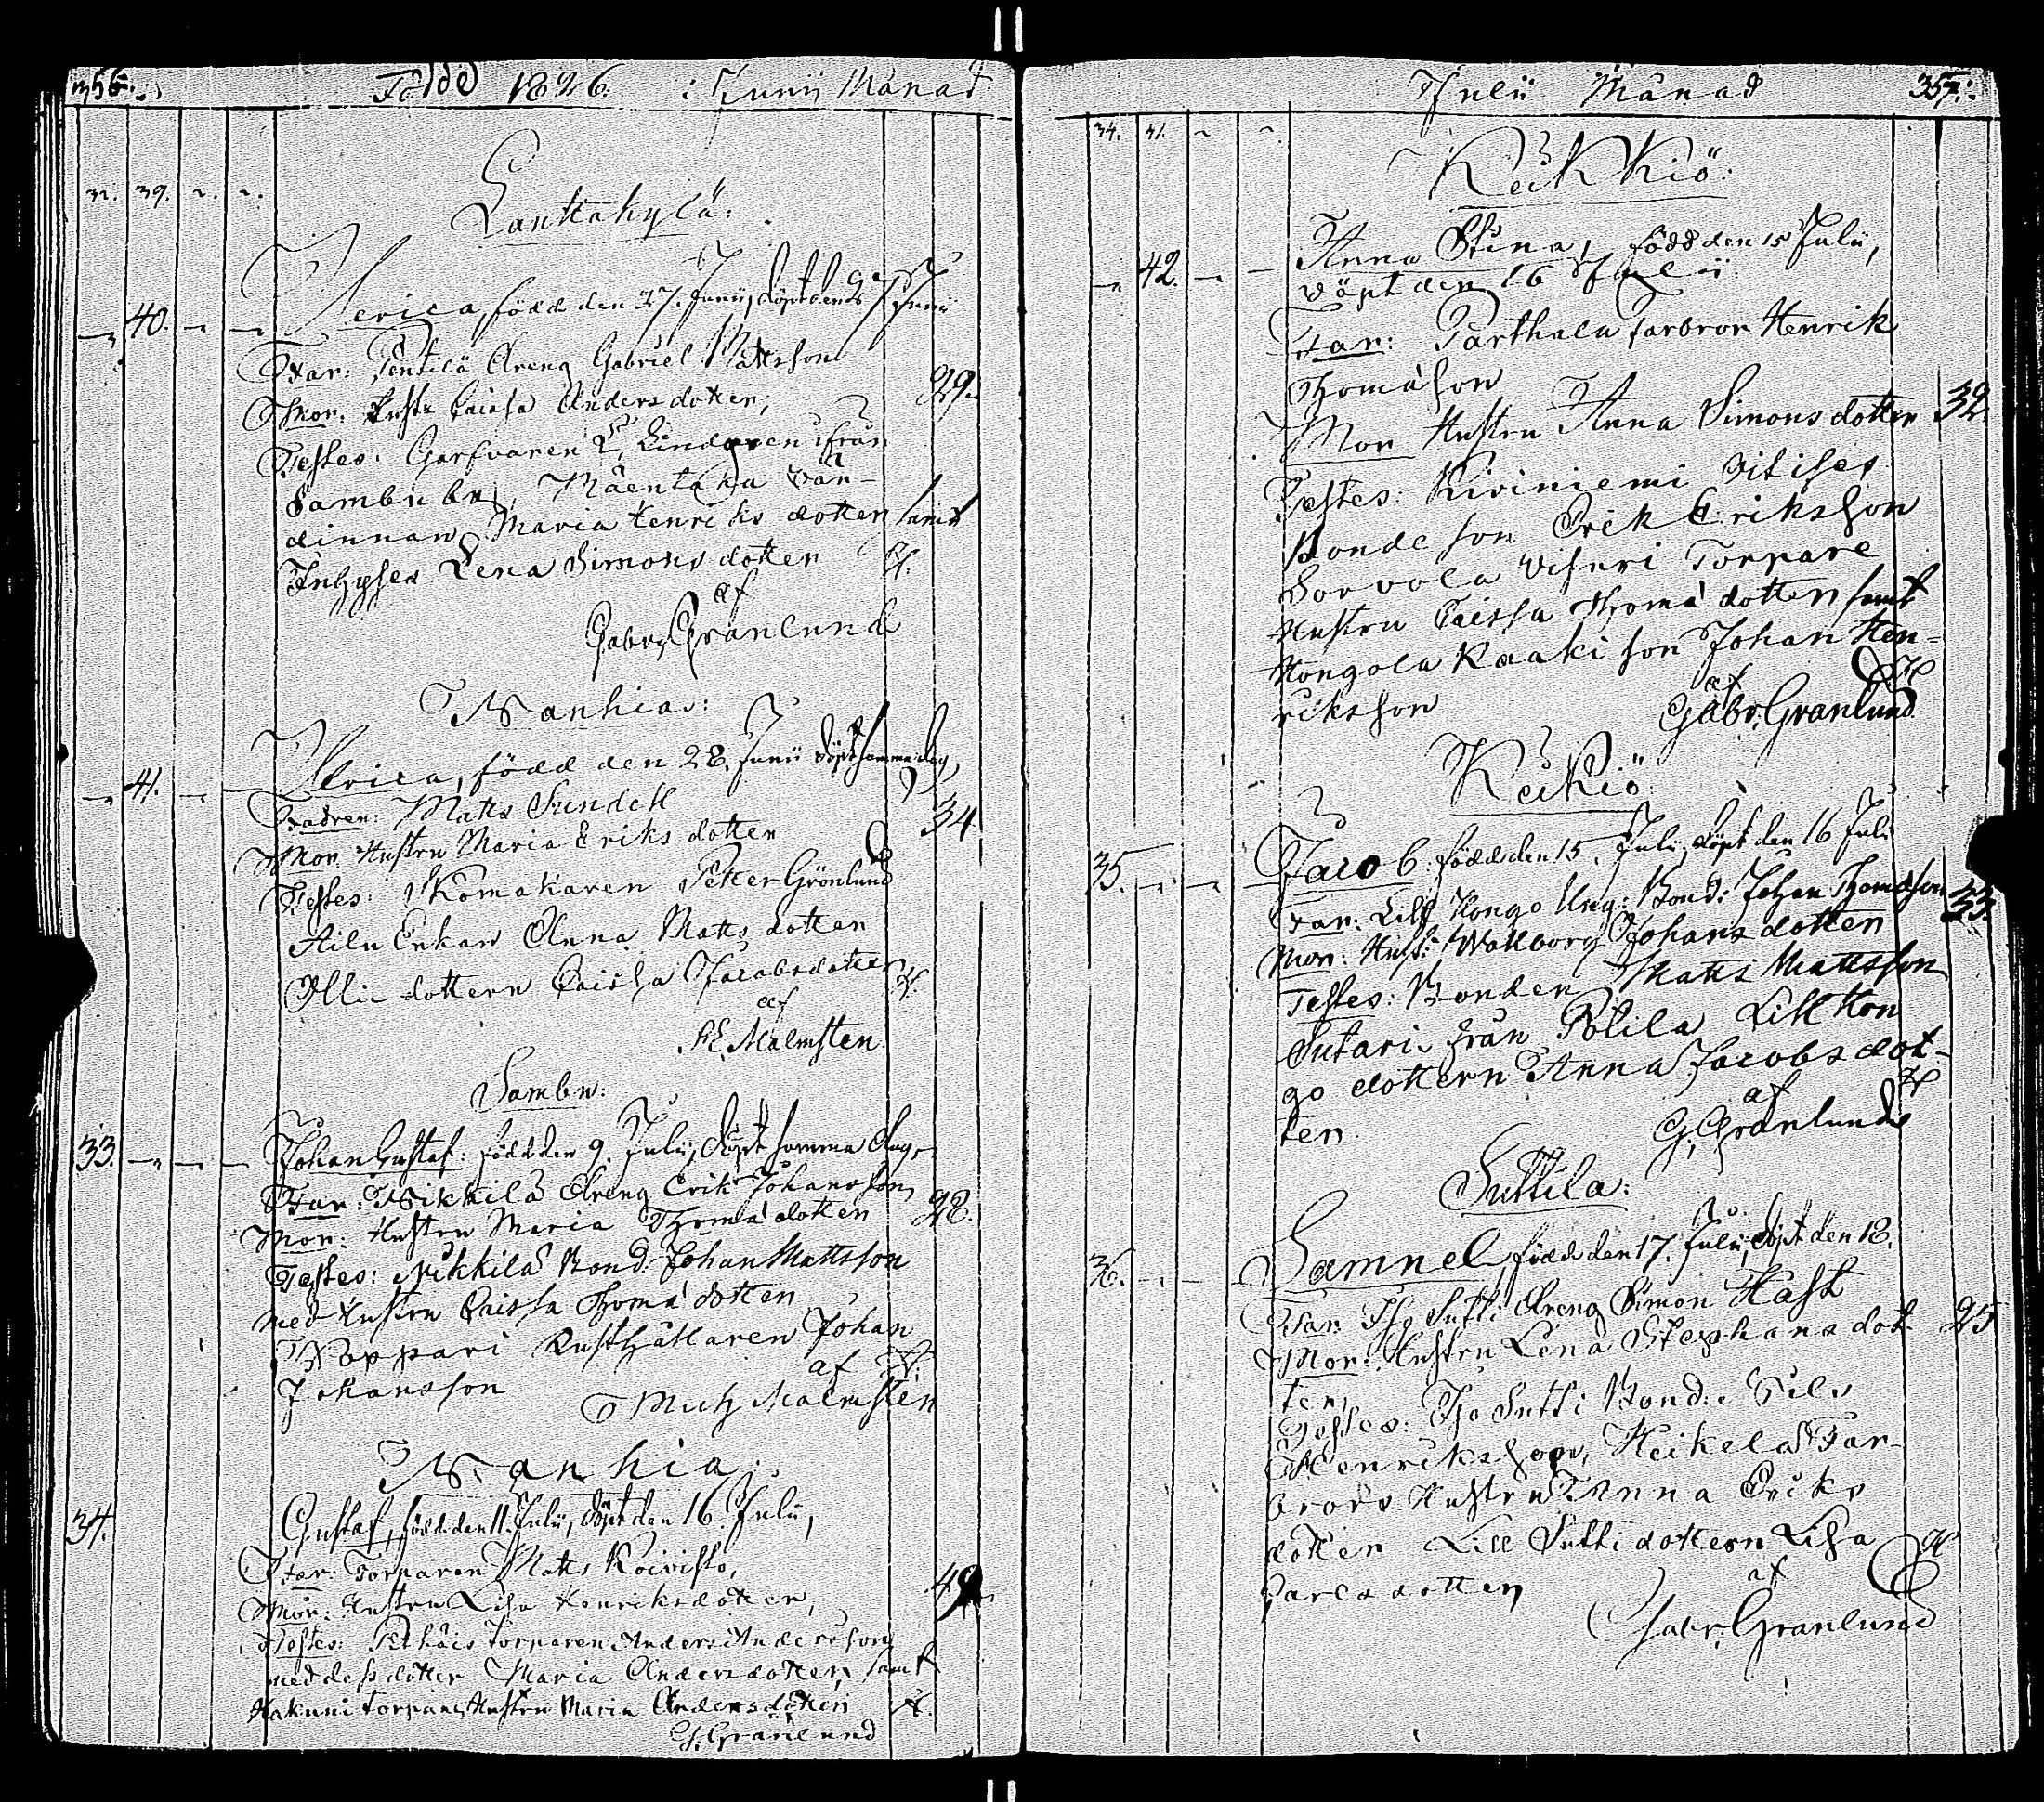 356.
Född 1826. i Junii Månad
32. 39. ~. ~.
Lauttakylä:
40. Ulrica, född den 27. Junii, döpt dends Junii
Far: Pentilä Dreng Gabriel Mattsson
Mor: Hustr Caissa Andersdotter; 29.
Testes: Garfvaren Lindgren ifrån
Sambu by, Mäentaka Vär-
dinnan Maria Henriks dotter samt
Inhyses Lena Simons dotter
af
Gabr. Granlund
Wanhia:
41. Ulrica, född den 28. Junii döpt samma dag,
Fadren: Matts Sundell
Mor Hustru Maria Eriks dotter 34
Testes: Skomakaren Petter Grönlund
Ailu Enkan Anna Matts dotter
Olli dottern Caissa Jacobsdotter
af
Malmsten.
Sambu:
33. Johan Gustaf: född den 9. Julii, döpt samma dag,
Far: Nikkilä Dreng Erik Johansson
Mor: Hustru Maria Thoma dotter 28.
Testes: Nikkilä Bond. Johan Mattsson
med Hustru Caissa Thoma dotter
Pappari Rusthållaren Johan
Johansson
af
Mich Malmsten
Wanhia:
34. Gustaf, född den 11. Julii, döpt den 16. Julii,
Far: Torparen Matts Koivisto,
Mor: Hustru Lisa Henriksdotter,
Testes: torparen Anders Andersson
med dess dotter Maria Andersdotter, samt
Hakuni torpare Hustru Maria Andersdotter
G. Granlund
Julii Månad 357.
34. 41. ~ ~
Keikkiö:
42. Anna Stina, född den 15 Julii,
döpt den 16 Julii
Far: Parthala farbror Henrik
Thomasson
Mor Hustru Anna Simons dotter 32
Testes: Kiviniemi
Bonde son Erik Eriksson
Sorvola Torpare
Hustru Caissa Thoma dotter samt
Hongola Kaaki son Johan Hen-
riksson
af
Gabr. Granlund.
Keikiö
35. Jacob: född den 15. Julii, döpt den 16 Julii
Far: Lill Hongo Ung: Bond: Johan Thomasson 33.
Mor: Hust: Wallborg Johans dotter
Testes: Bonden Matts Mattsson
Sutari från Polila Lill Hon
go dottern Anna Jacobs dot-
ter.
af
G. Granlund
Suttila:
36. Samuel, född den 17. Julii, döpt den 18.
Far: Iso Sutti Dreng Simon Hast
Mor: Hustru Lena Stephans dot- 25
ter,
Testes: Iso Sutti Bond:
Henriksson, Heikela Far-
brors Hustru Anna Eriks
dotter Lill Sutti dottern Lisa
Carls dotter
af
Gabr. Granlund